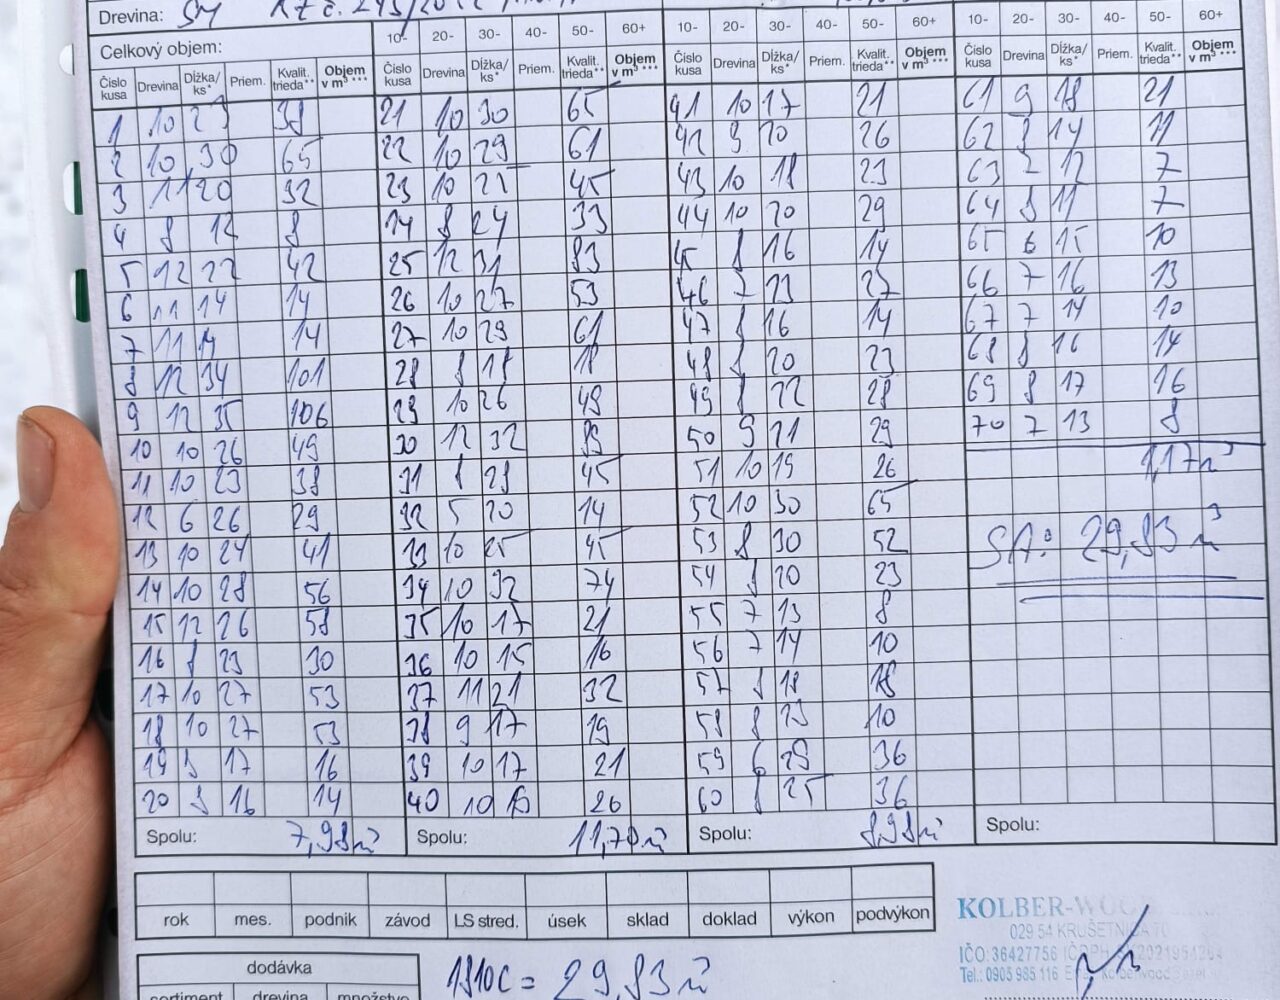 Drevina: SM
Celkový objem:
10- 20- 30- 40- 50- 60+
10- 20- 30- 40- 50- 60+
10- 20- 30- 40- 50- 60+
Číslo kusa Drevina Dĺžka/ks* Priem. Kvalit. trieda** Objem v m³ ***
Číslo kusa Drevina Dĺžka/ks* Priem. Kvalit. trieda** Objem v m³ ***
Číslo kusa Drevina Dĺžka/ks* Priem. Kvalit. trieda** Objem v m³ ***
Číslo kusa Drevina Dĺžka/ks* Priem. Kvalit. trieda** Objem v m³ ***
1 10 23 38 21 10 30 65 41 10 17 21 61 9 18 21
2 10 30 65 22 10 29 61 42 9 20 26 62 8 14 11
3 11 20 32 23 10 25 45 43 10 18 23 63 12 7
4 8 12 8 24 8 24 33 44 10 20 29 64 8 11 7
5 12 22 42 25 12 31 83 45 8 16 14 65 6 15 10
6 11 14 14 26 10 27 53 46 7 23 27 66 7 16 13
7 11 14 14 27 10 29 61 47 8 16 14 67 7 14 10
8 12 34 101 28 8 18 18 48 8 20 23 68 8 16 14
9 12 35 106 29 10 26 49 49 8 22 28 69 8 17 16
10 10 26 49 30 12 32 89 50 9 21 29 70 7 13 8
11 10 23 38 31 8 28 45 51 10 19 26 1,17 m³
12 6 26 29 32 5 20 14 52 10 30 65
13 10 24 41 33 10 25 45 53 8 30 52 SA: 29,83 m³
14 10 28 56 34 10 32 74 54 8 20 23
15 12 26 58 35 10 17 21 55 7 13 8
16 8 23 30 36 10 15 16 56 7 14 10
17 10 27 53 37 11 21 32 57 8 18 18
18 10 27 53 38 9 17 19 58 8 10
19 17 16 39 10 17 21 59 6 29 36
20 8 16 14 40 10 26 60 8 25 36
Spolu: 7,98 m³ Spolu: 11,70 m³ Spolu: 8,98 m³ Spolu:
rok mes. podnik závod LS stred. úsek sklad doklad výkon podvýkon
KOLBER-WOOD
029 54 KRUŠETNICA
IČO: 36427756 IČ DPH
Tel.: 0905 985 116
dodávka
sortiment drevina množstvo
= 29,83 m³